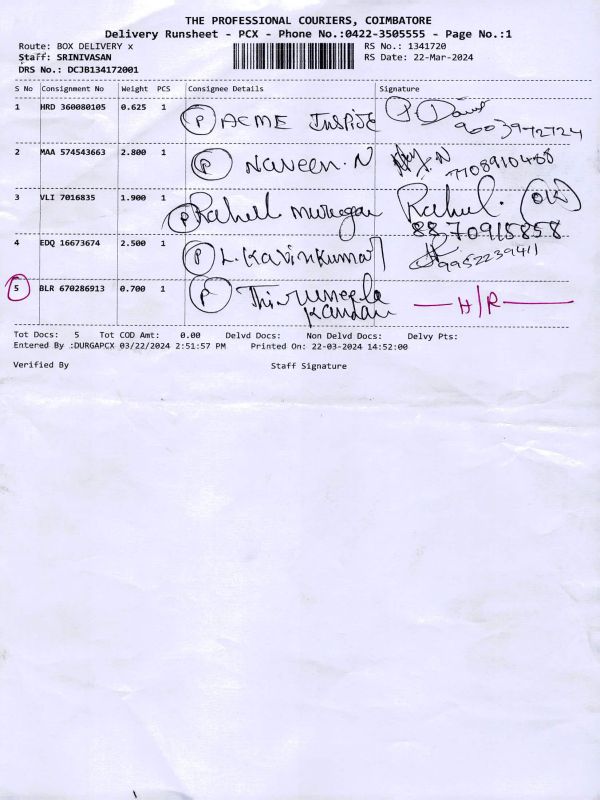 THE PROFESSIONAL COURIERS, COIMBATORE
Delivery Runsheet - PCX - Phone No.:0422-3505555 - Page No.:1
Route: BOX DELIVERY x RS No.: 1341720
Staff: SRINIVASAN RS Date: 22-Mar-2024
DRS No.: DCJB134172001
S No Consignment No Weight PCS Consignee Details Signature
1 HRD 360080105 0.625 1 P ACME
9003942724
2 MAA 574543663 2.800 1 P Naveen.N
7708910468
3 VLI 7016835 1.900 1 P Rahul Murugan Rahul. OK
8870915858
4 EDQ 16673674 2.500 1 P L.Kavinkumar 9952239411
5 BLR 670286913 0.700 1 P H/R
Tot Docs: 5 Tot COD Amt: 0.00 Delvd Docs: Non Delvd Docs: Delvy Pts:
Entered By :DURGAPCX 03/22/2024 2:51:57 PM Printed On: 22-03-2024 14:52:00
Verified By Staff Signature